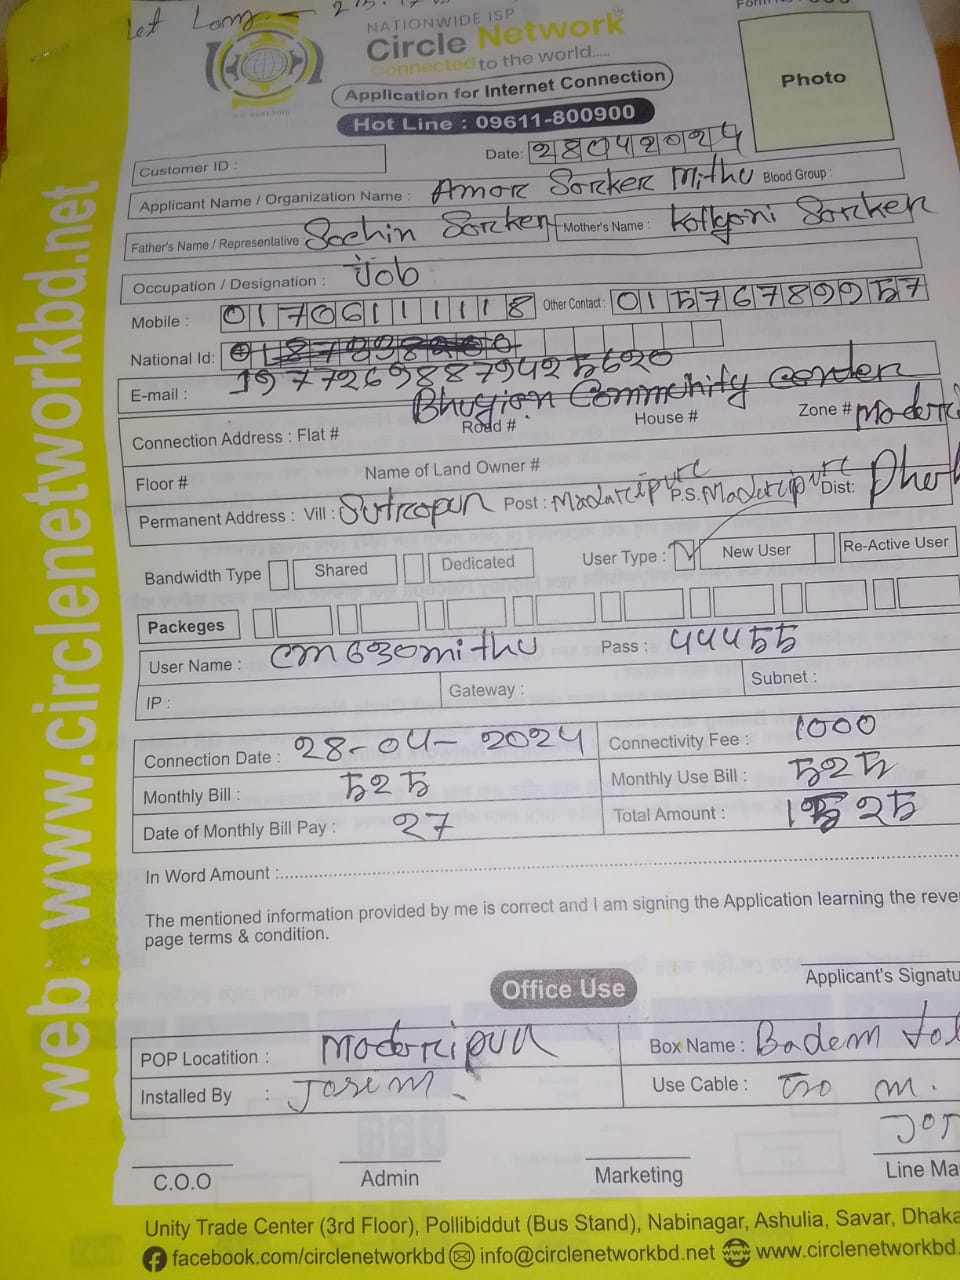 Let Long —
NATIONWIDE ISP
Circle Network
Connected to the world.....
Application for Internet Connection
Hot Line : 09611-800900
Photo
Date: 28042024
Customer ID :
Applicant Name / Organization Name : Amor Sorker Mithu Blood Group :
Father's Name / Representative Sochin Sorker Mother's Name : Sorker
Occupation / Designation : Job
Mobile : 01706111118 Other Contact : 01576789957
National Id:
E-mail : 19772698879425620
Community center
Connection Address : Flat # Road # House # Zone #
Floor # Name of Land Owner #
Permanent Address : Vill : Post : Madaripur P.S. Madaripur Dist:
Bandwidth Type Shared Dedicated User Type : New User Re-Active User
Packeges
User Name : cm630mithu Pass : 44455
IP : Gateway : Subnet :
Connection Date : 28-04-2024 Connectivity Fee : 1000
Monthly Bill : 525 Monthly Use Bill : 525
Date of Monthly Bill Pay : 27 Total Amount : 1525
In Word Amount :
The mentioned information provided by me is correct and I am signing the Application learning the reve
page terms & condition.
Applicant's Signatu
Office Use
POP Locatition : Moderipur Box Name : Badem tol
Installed By : Josim Use Cable : m.
C.O.O Admin Marketing Line Ma
Unity Trade Center (3rd Floor), Pollibiddut (Bus Stand), Nabinagar, Ashulia, Savar, Dhaka
facebook.com/circlenetworkbd info@circlenetworkbd.net www.circlenetworkbd.
web: www.circlenetworkbd.net